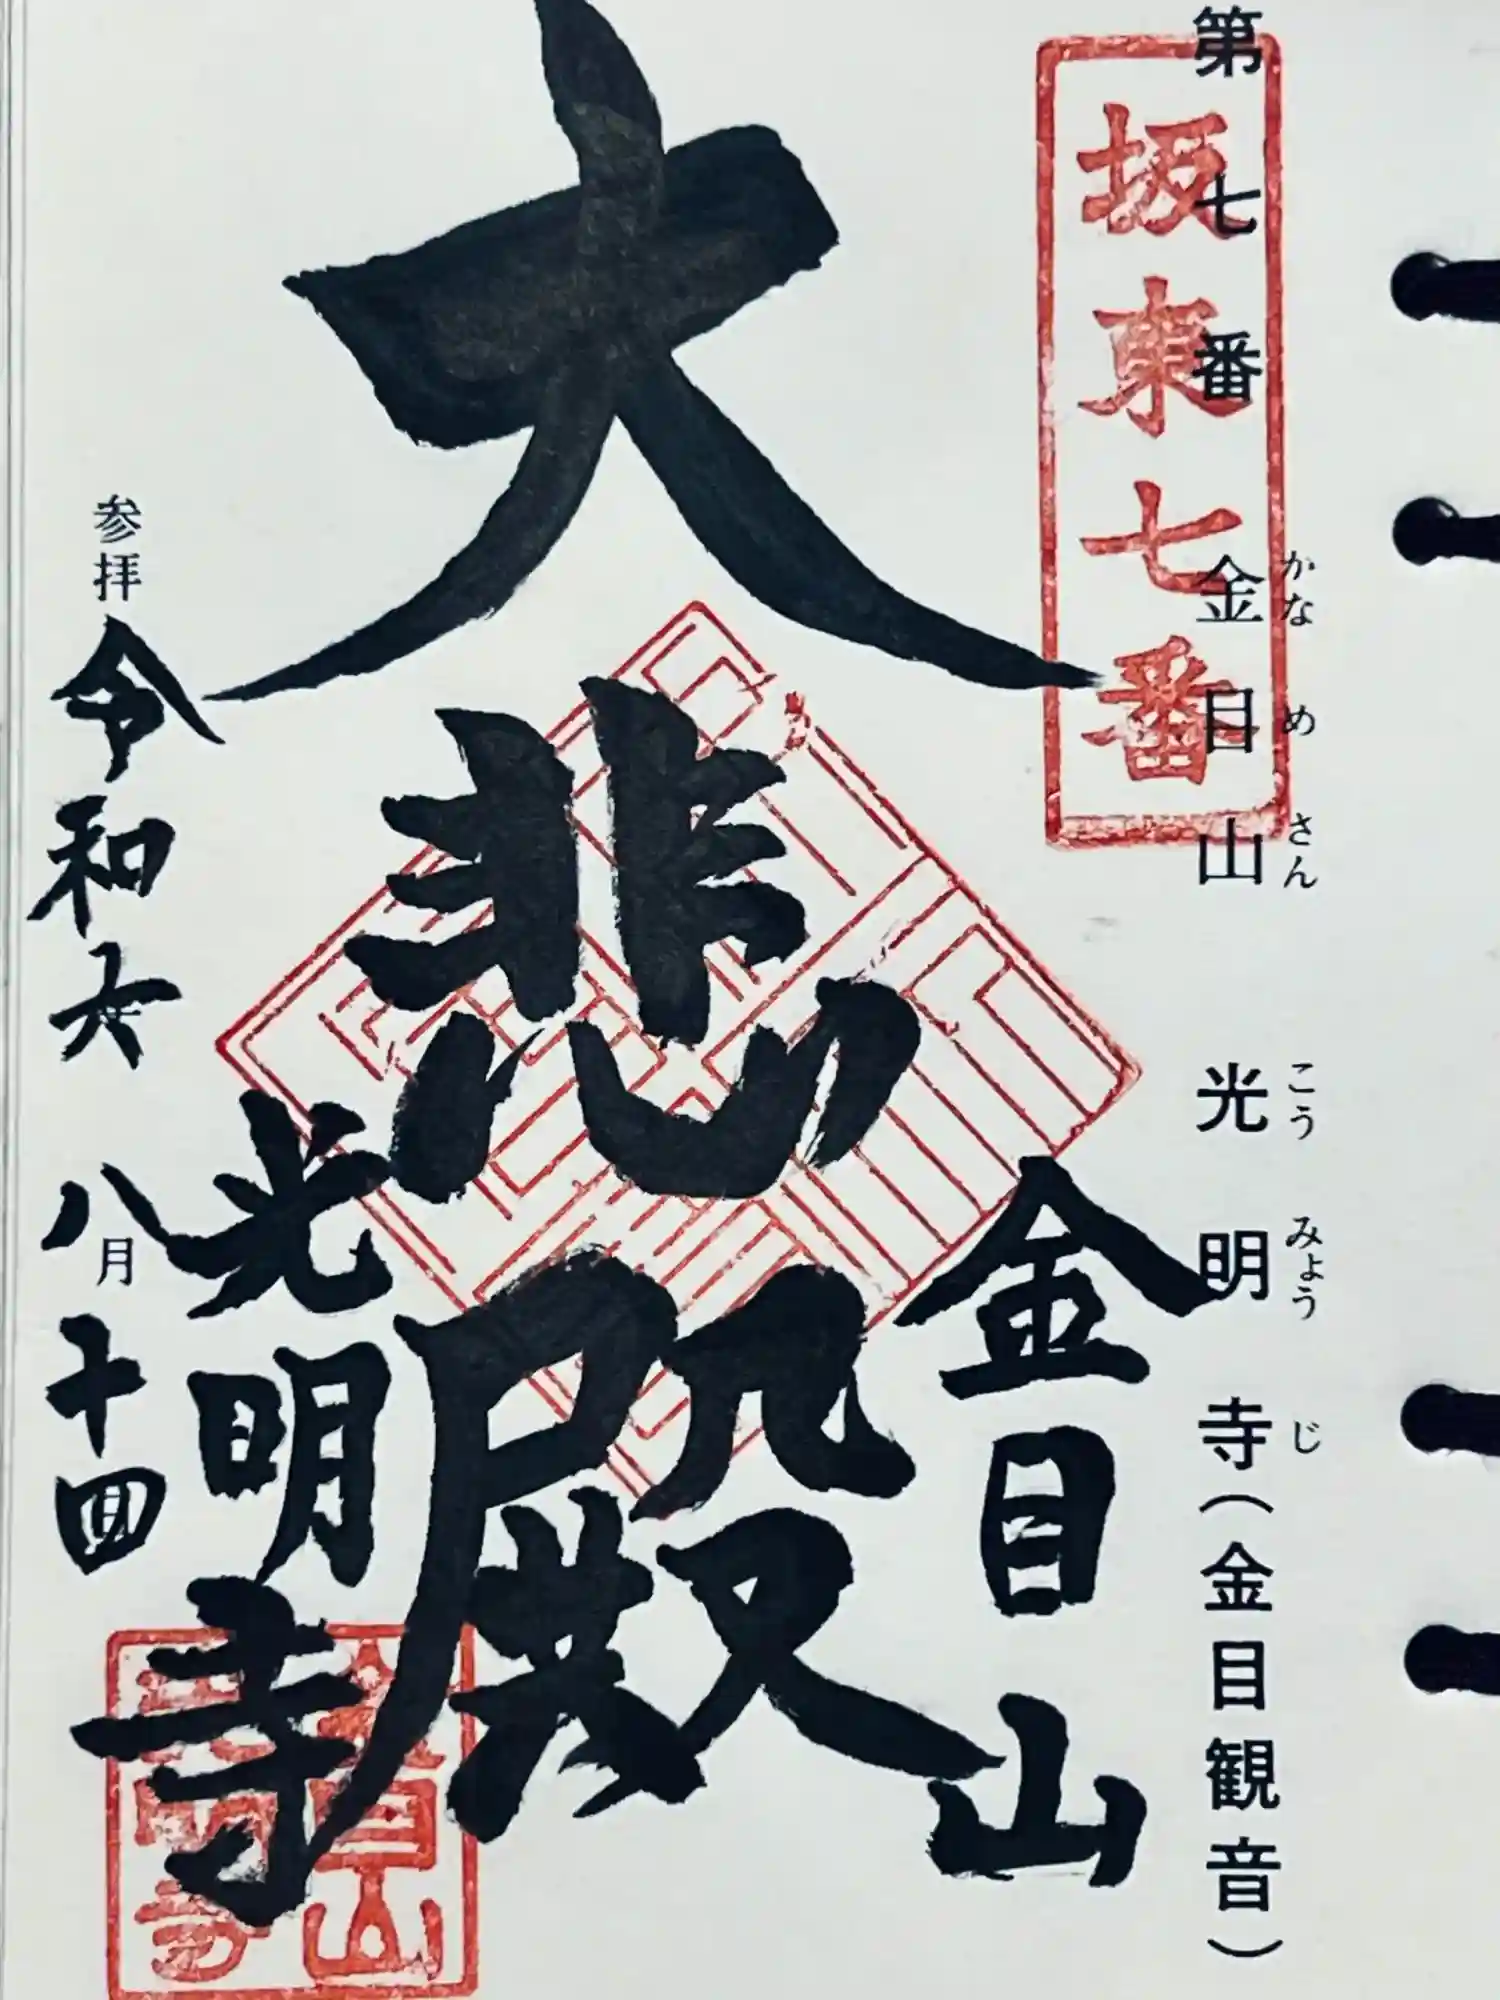 第七番 金目山 光明寺(金目観音)
かなめさん こうみょうじ
坂東七番
大悲殿
金目山
光明寺
参拝 令和六 八月十四日
金目山
光明寺